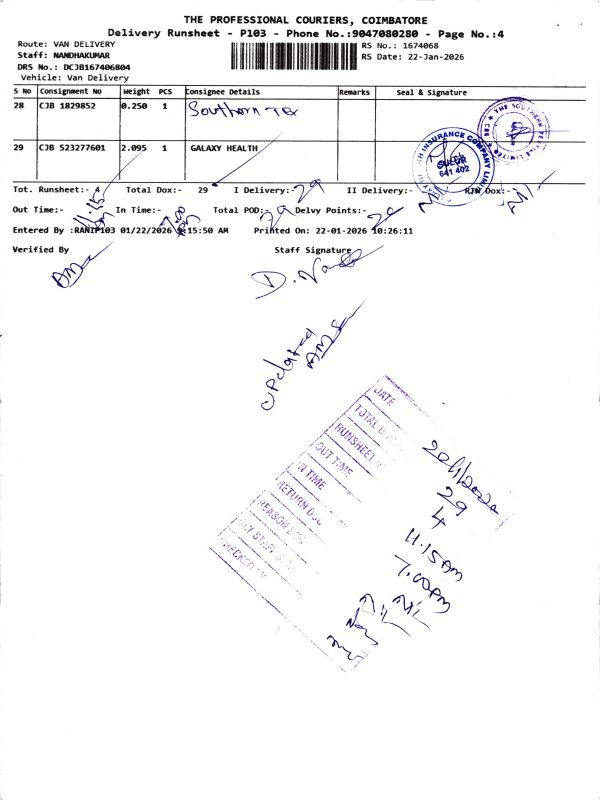 THE PROFESSIONAL COURIERS, COIMBATORE
Delivery Runsheet - P103 - Phone No.:9047080280 - Page No.:4
Route: VAN DELIVERY RS No.: 1674068
Staff: NANDHAKUMAR RS Date: 22-Jan-2026
DRS No.:- DCJB167406804
Vehicle: Van Delivery
S No Consignment No Weight PCS Consignee Details Remarks Seal & Signature
28 CJB 1829852 0.250 1 Southern
29 CJB 523277601 2.095 1 GALAXY HEALTH
THE SOUTHERN LIMITED CBE
INSURANCE COMPANY
SULUR
641 402
Tot. Runsheet:- 4 Total Dox:- 29 I Delivery:- 29 II Delivery:- RTN Dox:- Nil
Out Time:- 11.15 In Time:- 7.00 Total POD:- 29 Delvy Points:-
Entered By :RANIP103 01/22/2026 :15:50 AM Printed On: 22-01-2026 10:26:11
Verified By Staff Signature
updated
DATE
TOTAL
RUNSHEET 29
OUT TIME 4
IN TIME 11.15 AM
RETURN DOC 7.00 PM
REASON Nil
STAFF
CHECKED BY